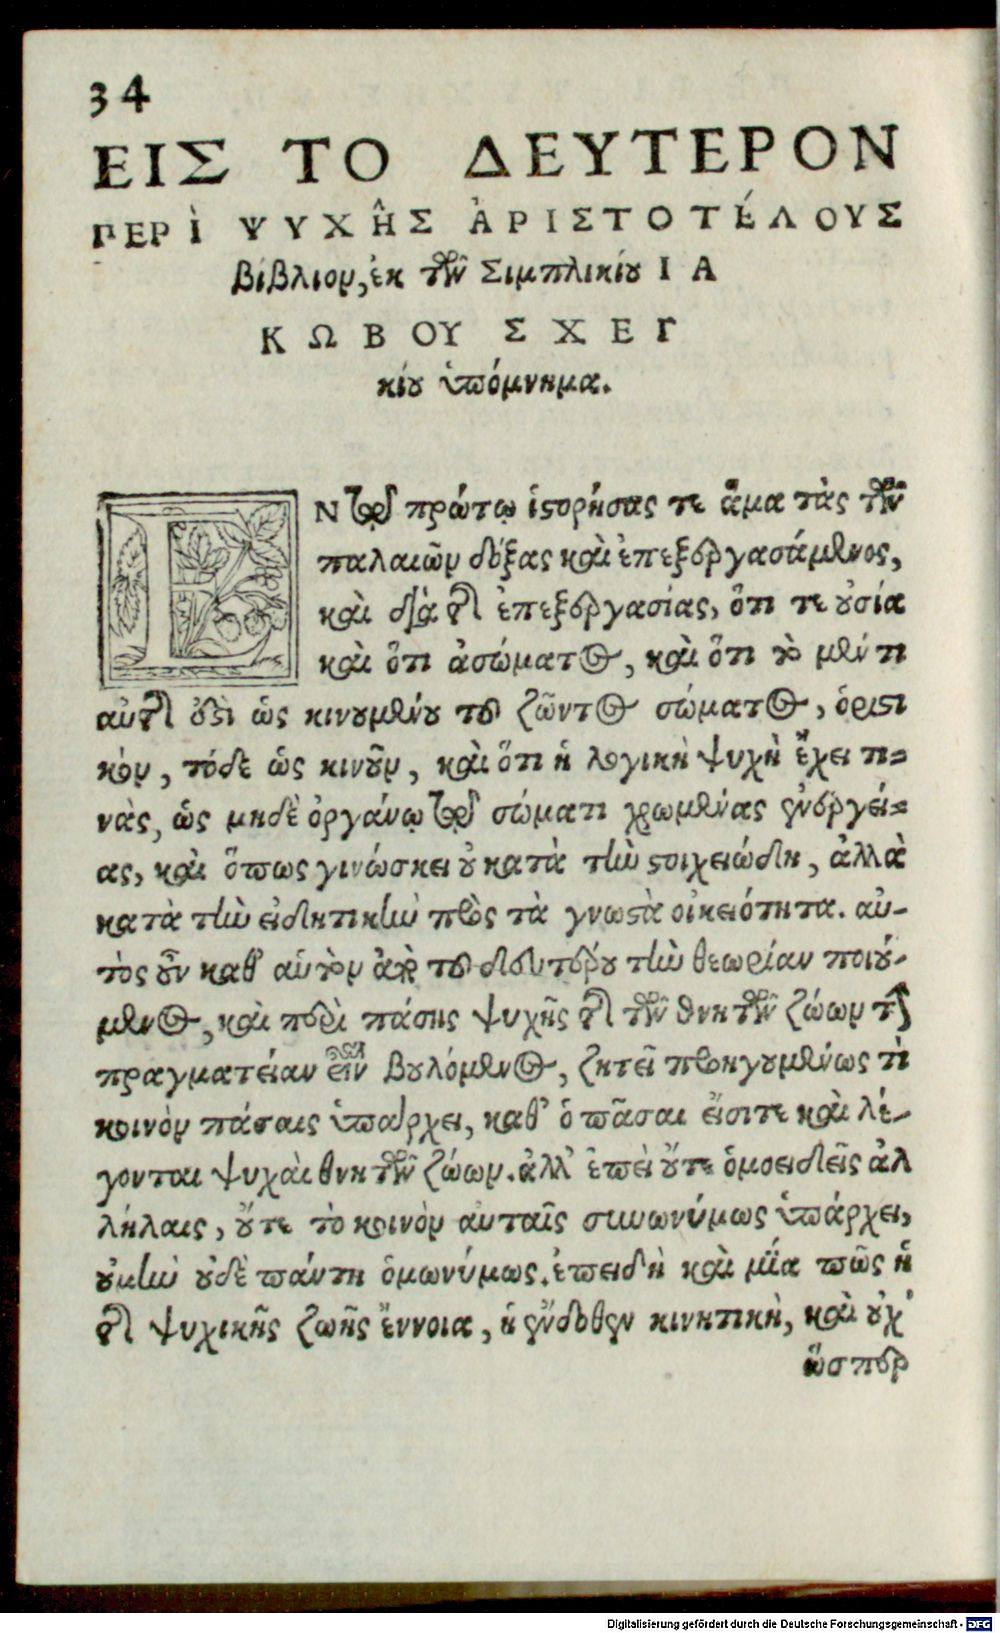 34
ΕΙΣ ΤΟ ΔΕΥΤΕΡΟΝ
ΠΕΡῚ ΨΥΧΗ͂Σ ἈΡΙΣΤΟΤΈΛΟΥΣ
βιβλίον, ἐκ τῶν Σιμπλικίου ΙΑ
ΚΩΒΟΥ ΣΧΕΓ
κίου ὑπόμνημα.
ΕΝ τῷ πρώτῳ ἱστορήσας τε ἅμα τὰς τῶν
παλαιῶν δόξας καὶ ἐπεξεργασάμενος,
καὶ διὰ τῆς ἐπεξεργασίας, ὅτι τε οὐσία
καὶ ὅτι ἀσώματος, καὶ ὅτι τὸ μέν τι
αὐτῆς ἐστὶ ὡς κινουμένου τοῦ ζῶντος σώματος, ὁριστι
κὸν, τόδε ὡς κινοῦν, καὶ ὅτι ἡ λογικὴ ψυχὴ ἔχει τι-
νὰς, ὡς μηδὲ ὀργάνῳ τῷ σώματι χρωμένας ἐνεργεί-
ας, καὶ ὅπως γινώσκει οὐ κατὰ τὴν στοιχειώδη, ἀλλὰ
κατὰ τὴν εἰδητικὴν πρὸς τὰ γνωστὰ οἰκειότητα. αὐ-
τὸς οὖν καθ' αὑτὸν ἀπὸ τοῦ δευτέρου τὴν θεωρίαν ποιού-
μενος, καὶ περὶ πάσης ψυχῆς τῆς τῶν θνητῶν ζώων τὴν
πραγματείαν εἶναι βουλόμενος, ζητεῖ προηγουμένως τί
κοινὸν πάσαις ὑπάρχει, καθ' ὃ πᾶσαι εἴσιτε καὶ λέ-
γονται ψυχαὶ θνητῶν ζώων. ἀλλ' ἐπεὶ οὔτε ὁμοειδεῖς ἀλ
λήλαις, οὔτε τὸ κοινὸν αὐταῖς συνωνύμως ὑπάρχει,
οὐμὴν οὐδὲ πάντη ὁμωνύμως. ἐπειδὴ καὶ μία πῶς ἡ
τῆς ψυχικῆς ζωῆς ἔννοια, ἡ ἔνδοθεν κινητικὴ, καὶ οὐχ'
ὥσπερ
Digitalisierung gefördert durch die Deutsche Forschungsgemeinschaft - DFG